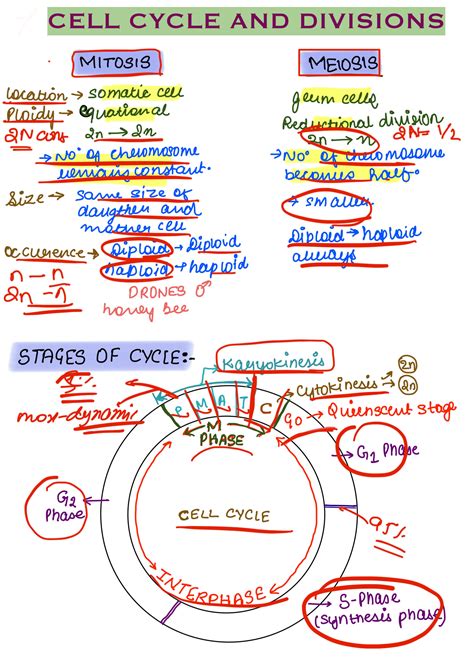 CELL CYCLE AND DIVISIONS
MITOSIS
Location → somatic cell
Ploidy → equational
2n → 2n
→ No° of chromosome
remains constant.
Size → same size of
daughter and
mother cell
occurence → Diploid → Diploid
haploid → haploid
n — n
DRONES ♂
honey bee
MEIOSIS
germ cells
Reductional division
2n → n 2N = 1/2
→ No° of chromosome
becomes half.
→ smaller
Diploid → haploid
always
STAGES OF CYCLE:-
Karyokinesis
2n
Cytokinesis →
2n
P M A T C
M
PHASE
G0 → Quienscent stage
→ G1 Phase
G2
Phase
CELL CYCLE
95%
INTERPHASE
→ S-Phase
(synthesis phase)